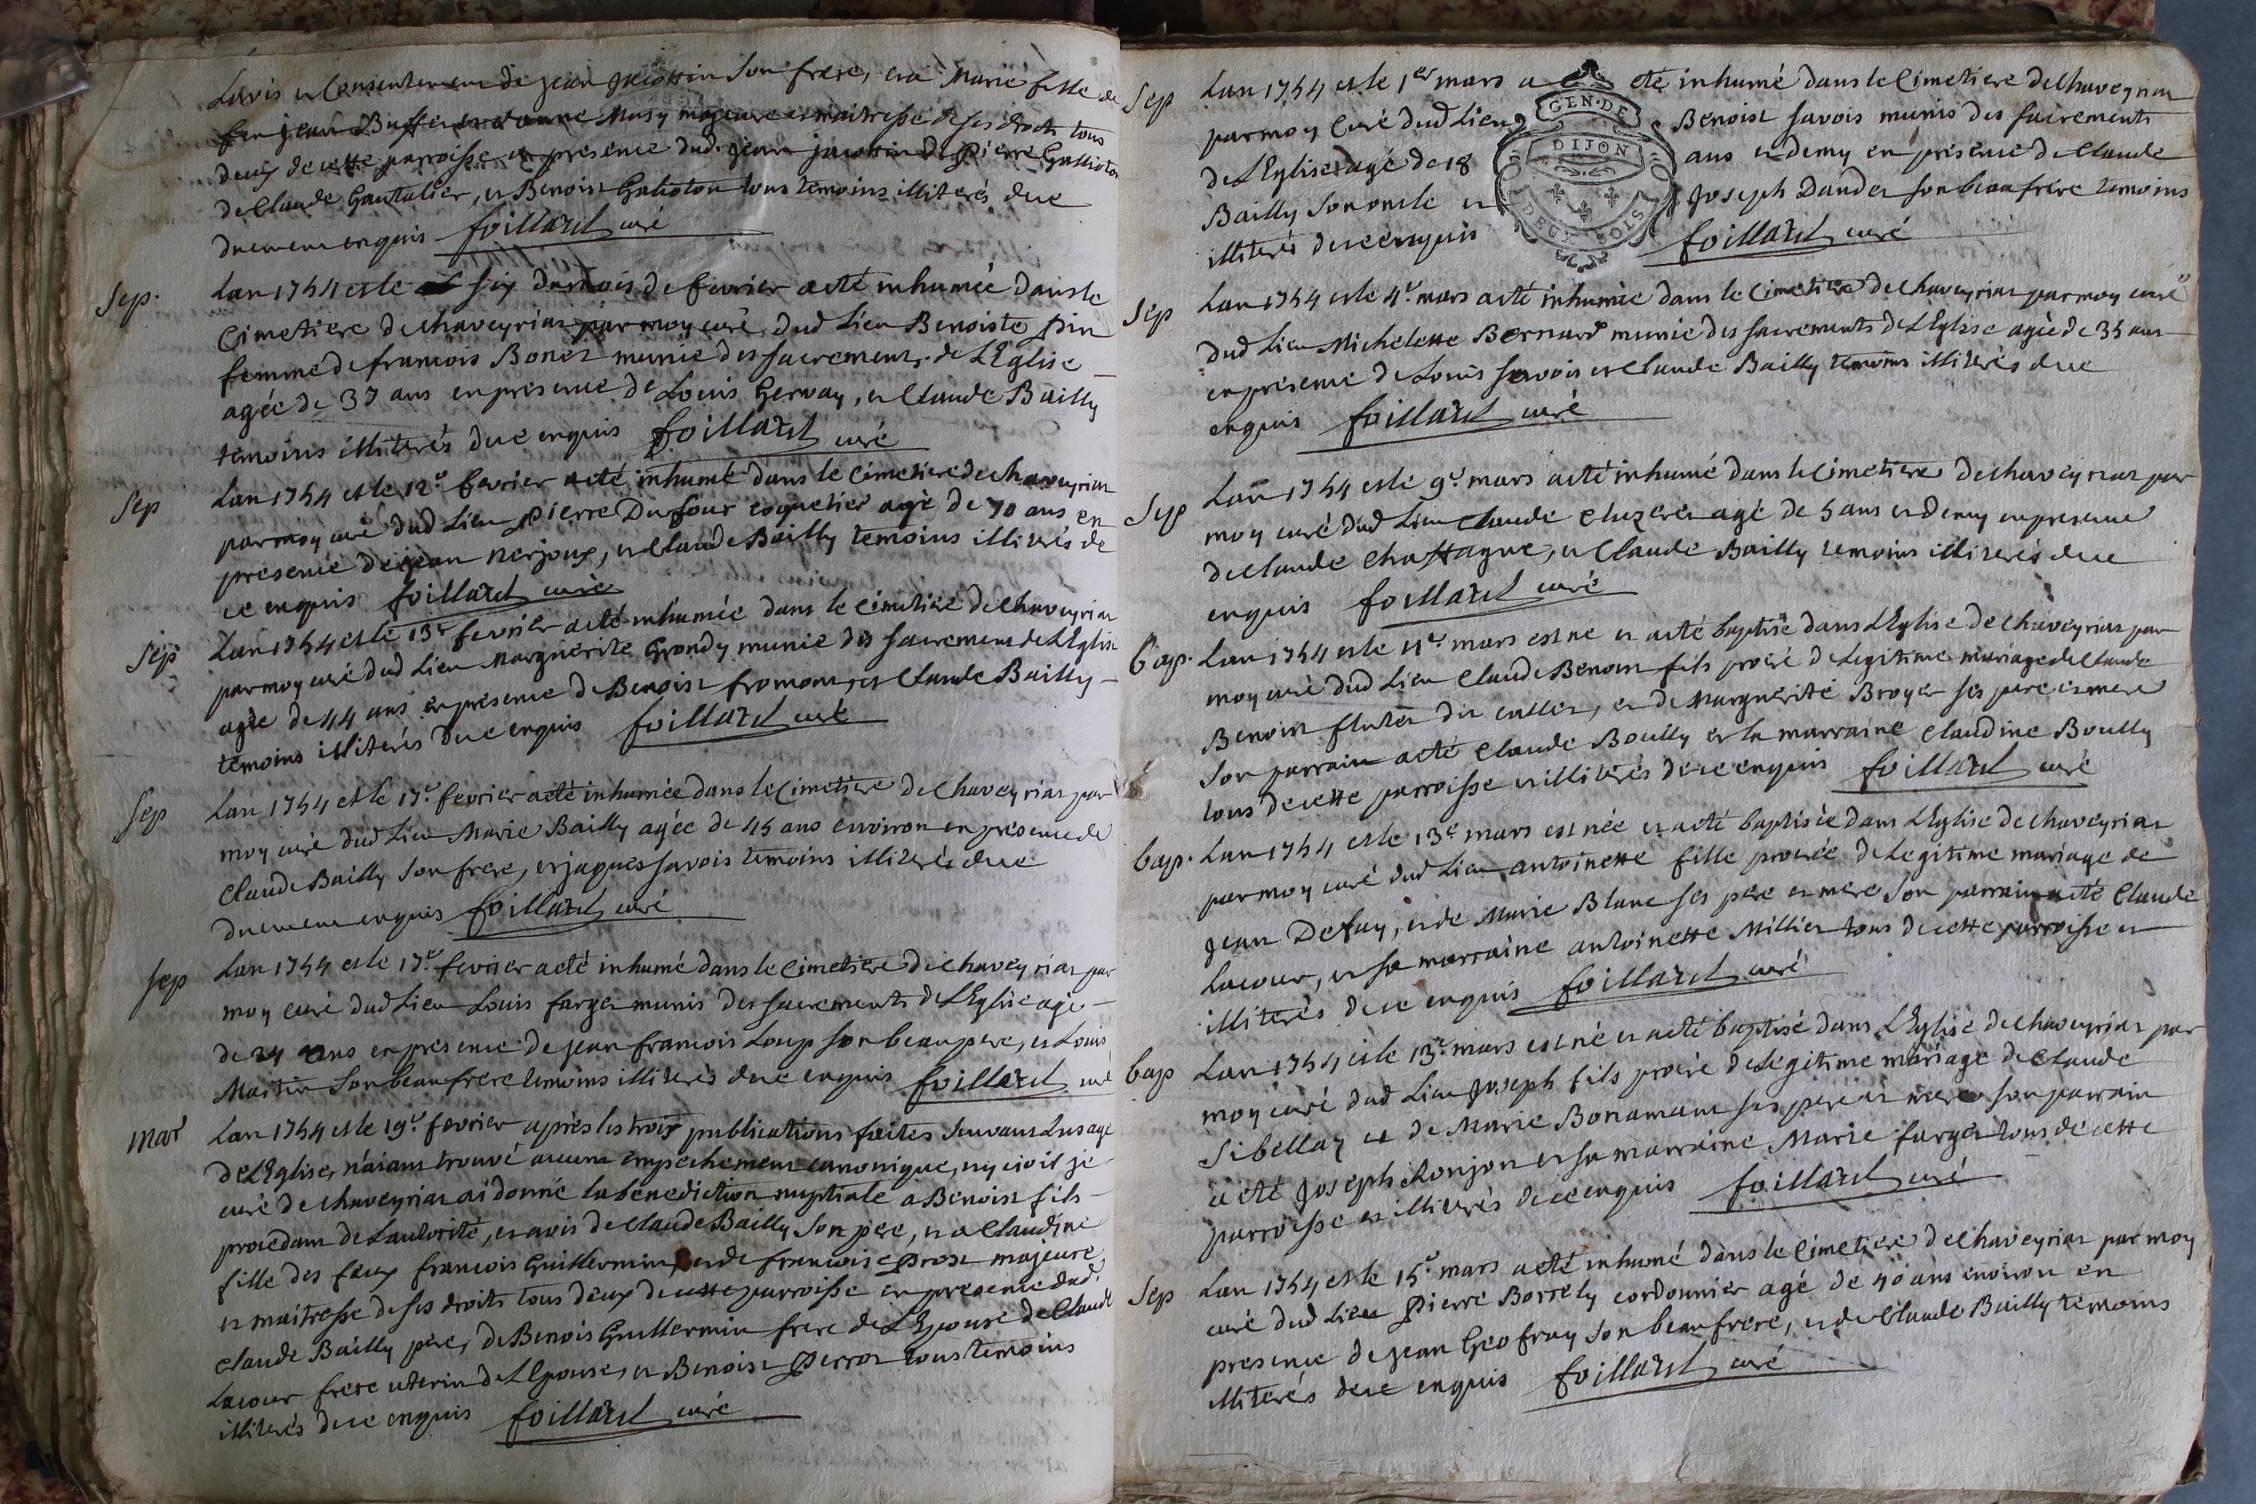 Lavis et Consentement de jean jacottin son frere, et a Marie fille de
feu jean Buffet et d'anne Musy majeure et maitresse de ses droits tous
deux de cette parroisse en presence dud. jean jacottin de pierre Gallioton
de Claude Gautalier, et Benoist Galioton tous temoins illiterés de ce
duement enquis foillard curé
Sep. Lan 1754 et le six du mois de fevrier a eté inhumée dans le
Cimetiere de chaveyriat par moy curé dud Lieu Benoiste pin
femme de francois Bonet munie des sacrements de L'Eglise
agée de 37 ans en presence de Louis Gervay, et Claude Bailly
temoins illiterés de ce enquis foillard curé
Sep Lan 1754 et le 12e fevrier a eté inhumé dans le Cimetiere de chaveyriat
par moy curé dud Lieu pierre Dufour coquetier agé de 70 ans en
presence de jean nerjoux, et Claude Bailly temoins illiterés de
ce enquis foillard curé
Sep Lan 1754 et le 13e fevrier a eté inhumée dans le Cimetiere de Chaveyriat
par moy curé dud Lieu Marguerite Grondy munie des sacrements de L'Eglise
agée de 44 ans en presence de Benoist fromont, et Claude Bailly
temoins illiterés de ce enquis foillard curé
Sep Lan 1754 et le 17e fevrier a eté inhumée dans le Cimetiere de Chaveyriat par
moy curé dud Lieu Marie Bailly agée de 45 ans environ en presence de
Claude Bailly son frere, et jaques savois temoins illiterés de ce
duement enquis foillard curé
Sep Lan 1754 et le 17e fevrier a eté inhumé dans le Cimetiere de Chaveyriat par
moy curé dud Lieu Louis farget munis des sacrements de L'Eglise agé
de 24 ans en presence de jean francois Loup son beaupere, et Louis
Martin son beaufrere temoins illiterés de ce enquis foillard curé
Mar Lan 1754 et le 19e fevrier après les trois publications faites suivant Lusage
de L'Eglise, n'aiant trouvé aucun empechement canonique, ny civil je
curé de chaveyriat ai donné la bénediction nuptiale a Benoist fils
procedant de Lautorité, et avis de Claude Bailly son pere, et a Claudine
fille des feux francois Guillermin, et de francoise prost majeure
et maitresse de ses droits tous deux de cette parroisse en presence dud.
Claude Bailly pere, de Benois Guillermin frere de L'Epouse de Claude
Lacour frere uterin de L'Epouse, et Benoist perrot tous temoins
illiterés de ce enquis foillard curé
Sep Lan 1754 et le 1er mars a eté inhumé dans le Cimetiere de Chaveyriat
par moy Curé dud Lieu Benoist savois munis des sacrements
de L'Eglise agé de 18 ans et demy en presence de Claude
Bailly son oncle et Joseph Dandet son beaufrere temoins
illiterés de ce enquis foillard curé
GEN. DE
DIJON
DEUX SOLS
Sep Lan 1754 et le 4e mars a eté inhumée dans le Cimetiere de Chaveyriat par moy curé
dud Lieu Michelette Bernard munie des sacrements de L'Eglise agée de 35 ans
en presence de Louis servois et Claude Bailly temoins illiterés de ce
enquis foillard curé
Sep Lan 1754 et le 9e mars a eté inhumé dans le Cimetiere de chaveyriat par
moy curé dud Lieu Claude Cluzeret agé de 5 ans et demy en presence
de Claude Chattagne, et Claude Bailly temoins illiterés de ce
enquis foillard curé
bap. Lan 1754 et le 11e mars est né et a eté baptisé dans L'Eglise de chaveyriat par
moy curé dud Lieu Claude Benoist fils procré de Legitime mariage de Claude
Benoist flutet dit callet, et de Marguerite Broyer ses pere et mere
son parrain a eté Claude Boully et la marraine Claudine Boully
tous de cette parroisse et illiterés de ce enquis foillard curé
bap. Lan 1754 et le 13e mars est née et a eté baptisée dans L'Eglise de chaveyriat
par moy curé dud Lieu antoinette fille procrée de Legitime mariage de
jean Defay, et de Marie Blanc ses pere et mere son parrain a eté Claude
Lacour, et sa marraine antoinette Millier tous de cette parroisse et
illiterés de ce enquis foillard curé
bap Lan 1754 et le 13e mars est né et a eté baptisé dans L'Eglise de chaveyriat par
moy curé dud Lieu Joseph fils procré de Legitime mariage de Claude
Sibellaz et de Marie Bonamant ses pere et mere son parrain
a eté Joseph Ronjon et sa marraine Marie farget tous de cette
parroisse et illiterés de ce enquis foillard curé
Sep Lan 1754 et le 15e mars a eté inhumé dans le Cimetiere de Chaveyriat par moy
curé dud Lieu pierre Borrely cordonnier agé de 40 ans environ en
presence de jean Geofray son beaufrere, et de Claude Bailly temoins
illiterés de ce enquis foillard curé